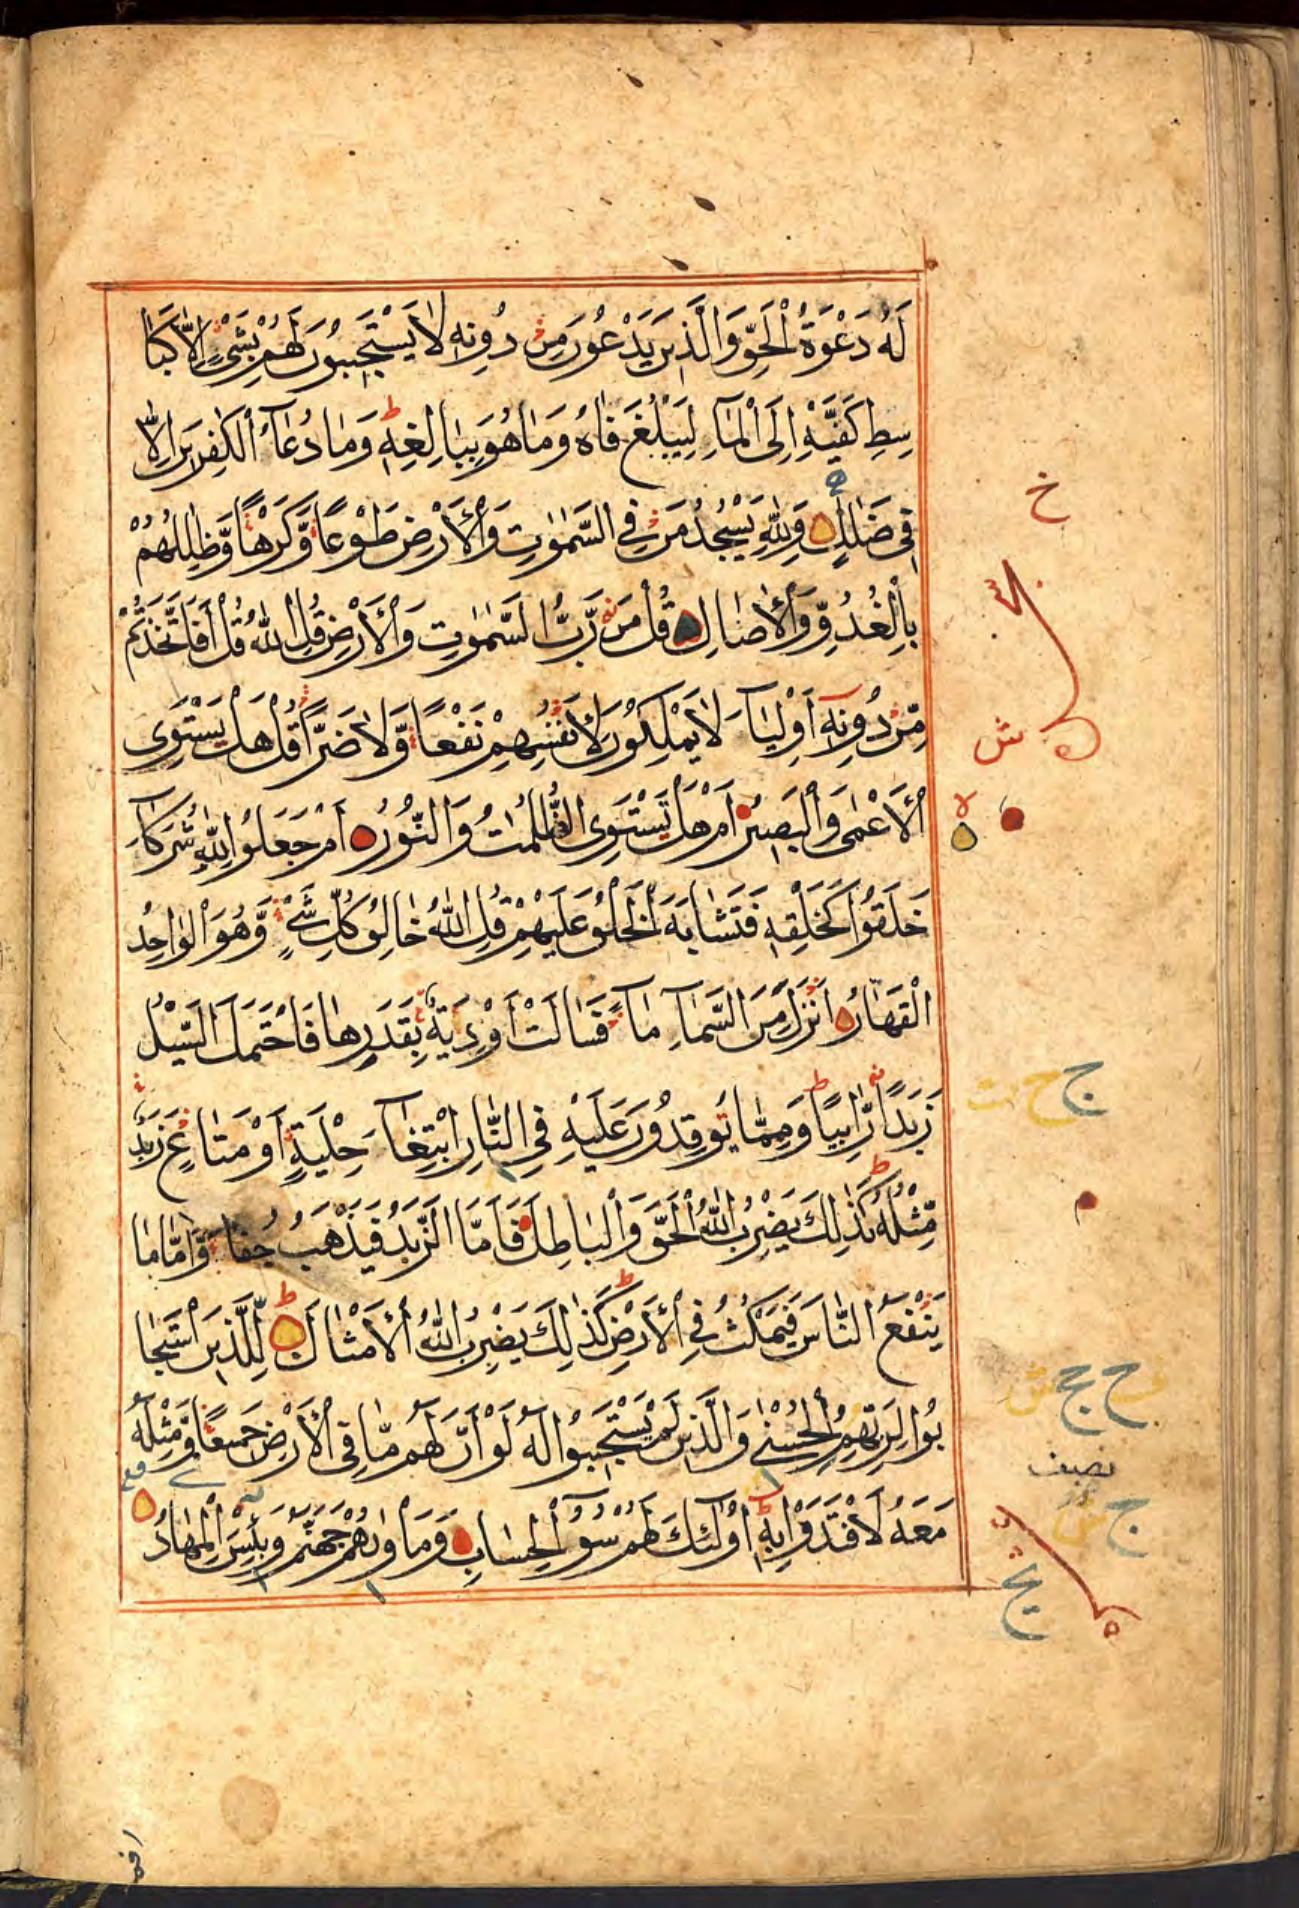 لَهُ دَعْوَةُ الْحَقِّ وَالَّذِينَ يَدْعُونَ مِنْ دُونِهِ لَا يَسْتَجِيبُونَ لَهُمْ بِشَيْءٍ إِلَّا كَبَا
سِطِ كَفَّيْهِ إِلَى الْمَآءِ لِيَبْلُغَ فَاهُ وَمَا هُوَ بِبَالِغِهِ ط وَمَا دُعَآءُ الْكٰفِرِينَ إِلَّا
فِي ضَلٰلٍ وَلِلّٰهِ يَسْجُدُ مَنْ فِي السَّمٰوٰتِ وَالْأَرْضِ طَوْعًا وَّكَرْهًا وَّظِلٰلُهُمْ
بِالْغُدُوِّ وَالْأٰصَالِ قُلْ مَنْ رَّبُّ السَّمٰوٰتِ وَالْأَرْضِ قُلِ اللّٰهُ قُلْ أَفَاتَّخَذْتُمْ
مِّنْ دُونِهٓ أَوْلِيَآءَ لَا يَمْلِكُونَ لِأَنْفُسِهِمْ نَفْعًا وَّلَا ضَرًّا قُلْ هَلْ يَسْتَوِى
الْأَعْمٰى وَالْبَصِيرُ أَمْ هَلْ تَسْتَوِى الظُّلُمٰتُ وَالنُّورُ أَمْ جَعَلُوا لِلّٰهِ شُرَكَآءَ
خَلَقُوا كَخَلْقِهِ فَتَشَابَهَ الْخَلْقُ عَلَيْهِمْ قُلِ اللّٰهُ خَالِقُ كُلِّ شَيْءٍ وَّهُوَ الْوَاحِدُ
الْقَهَّارُ أَنْزَلَ مِنَ السَّمَآءِ مَآءً فَسَالَتْ أَوْدِيَةٌ بِقَدَرِهَا فَاحْتَمَلَ السَّيْلُ
زَبَدًا رَّابِيًا ط وَمِمَّا يُوقِدُونَ عَلَيْهِ فِي النَّارِ ابْتِغَآءَ حِلْيَةٍ أَوْ مَتَاعٍ زَبَدٌ
مِّثْلُهُ ط كَذٰلِكَ يَضْرِبُ اللّٰهُ الْحَقَّ وَالْبَاطِلَ فَأَمَّا الزَّبَدُ فَيَذْهَبُ جُفَآءً وَّأَمَّا مَا
يَنْفَعُ النَّاسَ فَيَمْكُثُ فِي الْأَرْضِ ط كَذٰلِكَ يَضْرِبُ اللّٰهُ الْأَمْثَالَ ط لِلَّذِينَ اسْتَجَا
بُوا لِرَبِّهِمُ الْحُسْنٰى وَالَّذِينَ لَمْ يَسْتَجِيبُوا لَهُ لَوْ أَنَّ لَهُمْ مَّا فِي الْأَرْضِ جَمِيعًا وَّمِثْلَهُ
مَعَهُ لَافْتَدَوْا بِهِ ط أُولٰٓئِكَ لَهُمْ سُوٓءُ الْحِسَابِ وَمَأْوٰىهُمْ جَهَنَّمُ وَبِئْسَ الْمِهَادُ
خ
ش
نصف